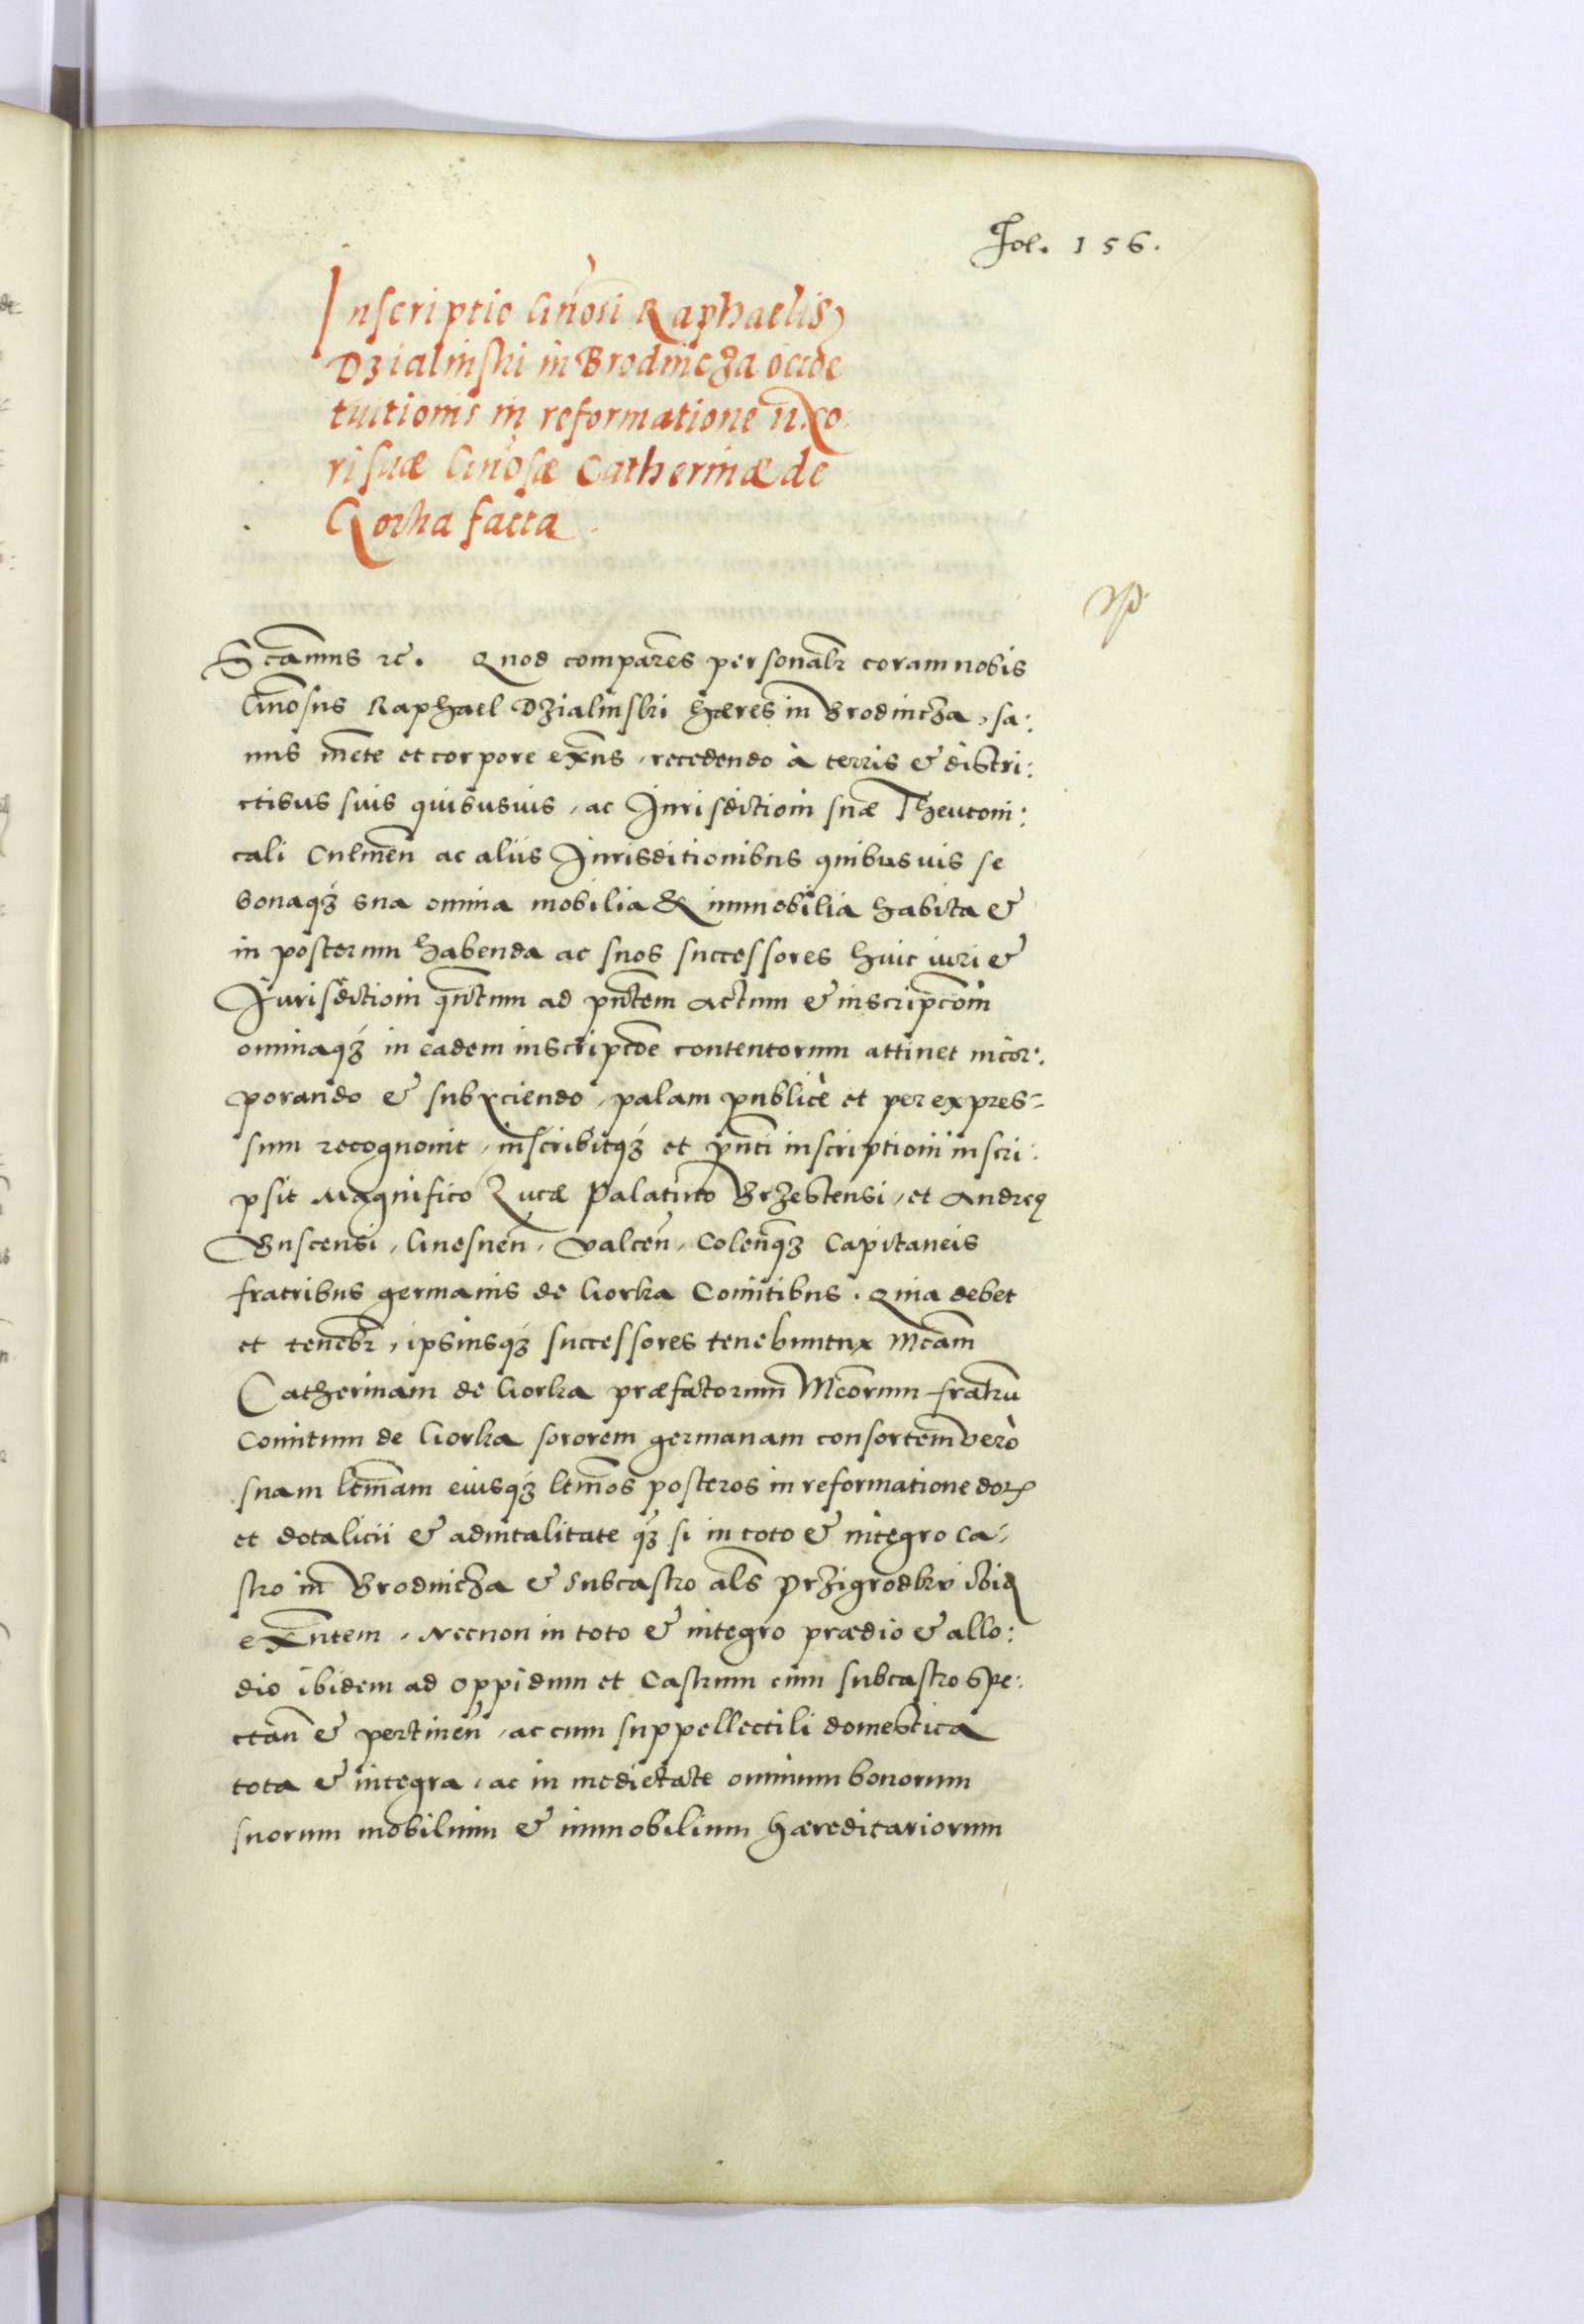 Fol. 156.
Inscriptio Gnosi Raphaelis
Dzialinski in Brodnicza de
tuitionis in reformatione uxo
ri suæ Gnosæ Catherinæ de
Gorka facta
Scamus rc. Quod comparens personalr coram nobis
Gnosus Raphael Dzialinski hæres in Brodnicza, sa:
nus mente et corpore exns, recedendo à terris & distri:
ctibus suis quibusuis, ac Jurisdictioni suæ Theutoni:
cali Culmen ac aliis Jurisditionibus quibusuis se
bonaqȝ sua omnia mobilia & immobilia habita &
in posterum habenda ac suos successores huic iuri &
Jurisdictioni qntum ad pntem actum & inscripcom
omniaqȝ in eadem inscripcoe contentorum attinet incor:
porando & subyciendo, palam publicè et per expres=
sum recognouit, inscribitqȝ et pnti inscriptioni inscri:
psit Magnifico Lucæ Palatino Brzestensi, et Andreę
Buscensi, Gnesnen, Valcen, Colenqȝ Capitaneis
fratribus germanis de Gorka Comitibus. Quia debet
et tenebr, ipsiusqȝ successores tenebuntur Mcam
Catherinam de Gorka præfatorum Mcorum fratrū
Comitum de Gorka sororem germanam consortem verò
suam ltmam eiusqȝ ltmos posteros in reformatione dot
et dotalicii & aduitalitate qȝ si in toto & integro ca:
stro in Brodnicza & Subcastro als Przigrodku ibid
exntem, Necnon in toto & integro prædio & allo:
dio ibidem ad oppidum et Castrum cum subcastro spe:
ctan & pertinen, ac cum suppellectili domestica
tota & integra, ac in medietate omnium bonorum
suorum mobilium & immobilium hæreditariorum